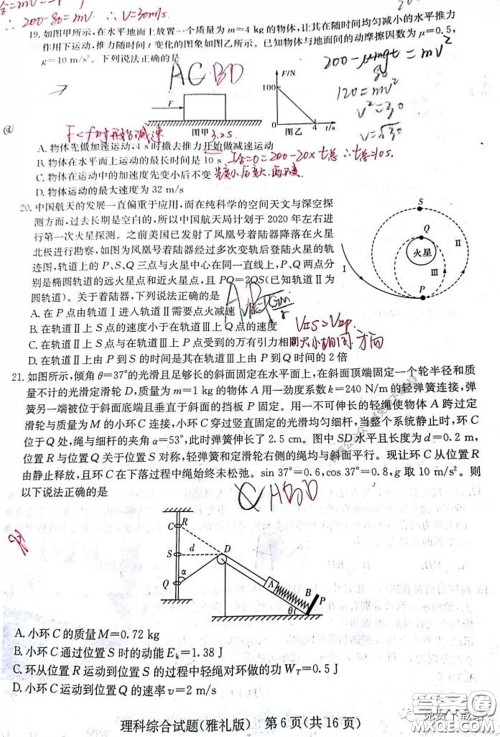 200-80=mv ∴ V=30m/s.
19. 如图甲所示,在水平地面上放置一个质量为 m=4 kg 的物体,让其在随时间均匀减小的水平推力
作用下运动,推力随时间 t 变化的图象如图乙所示。已知物体与地面间的动摩擦因数为 μ=0.5,
g=10 m/s²。下列说法正确的是
200-μmgt=mv
120=mv
ACBD
F
F/N
4 t/s
图甲
图乙
A. 物体先做加速运动,
时撤去推力开始做减速运动
B. 物体在水平面上运动的最长时间是 10 s
C. 物体在运动中的加速度先变小后不变
D. 物体运动的最大速度为 32 m/s
20. 中国航天的发展一直偏重于应用,而在纯科学的空间天文与深空探
测方面,过去长期是空白的,所以中国航天局计划于 2020 年左右进
行第一次火星探测。之前美国已发射了凤凰号着陆器降落在火星
北极进行勘察,如图为凤凰号着陆器经过多次变轨后登陆火星的轨
迹图,轨道上的 P、S、Q 三点与火星中心在同一直线上,P、Q 两点分
别是椭圆轨道的远火星点和近火星点,且 PQ=2QS(已知轨道Ⅱ为
圆轨道)。关于着陆器,下列说法正确的是
S
Q
火星
Ⅰ
Ⅱ
Ⅲ
P
A. 在 P 点由轨道Ⅰ进入轨道Ⅱ需要点火减速
B. 在轨道Ⅱ上 S 点的速度小于在轨道Ⅲ上 Q 点的速度
C. 在轨道Ⅱ上 S 点与在轨道Ⅲ上 P 点受到的万有引力相同
D. 在轨道Ⅱ上由 P 到 S 的时间是其在轨道Ⅲ上由 P 到 Q 时间的 2 倍
21. 如图所示,倾角 θ=37°的光滑且足够长的斜面固定在水平面上,在斜面顶端固定一个轮半径和质
量不计的光滑定滑轮 D,质量为 m=1 kg 的物体 A 用一劲度系数 k=240 N/m 的轻弹簧连接,弹
簧另一端被位于斜面底端且垂直于斜面的挡板 P 固定。用一不可伸长的轻绳使物体 A 跨过定
滑轮与质量为 M 的小环 C 连接,小环 C 穿过竖直固定的光滑均匀细杆,当整个系统静止时,环 C
位于 Q 处,绳与细杆的夹角 α=53°,此时弹簧伸长了 2.5 cm。图中 SD 水平且长度为 d=0.2 m,
位置 R 与位置 Q 关于位置 S 对称,轻弹簧和定滑轮右侧的绳均与斜面平行。现让环 C 从位置 R
由静止释放,且环 C 在下落过程中绳始终未松弛。sin 37°=0.6,cos 37°=0.8,g 取 10 m/s²。则
以下说法正确的是
ABD
C
R
S
d
D
Q
α
A
B
P
θ
A. 小环 C 的质量 M=0.72 kg
B. 小环 C 通过位置 S 时的动能 Eₖ=1.38 J
C. 环从位置 R 运动到位置 S 的过程中轻绳对环做的功 W_T=0.5 J
D. 小环 C 运动到位置 Q 的速率 v=2 m/s
理科综合试题(雅礼版) 第 6 页(共 16 页)
答案圈